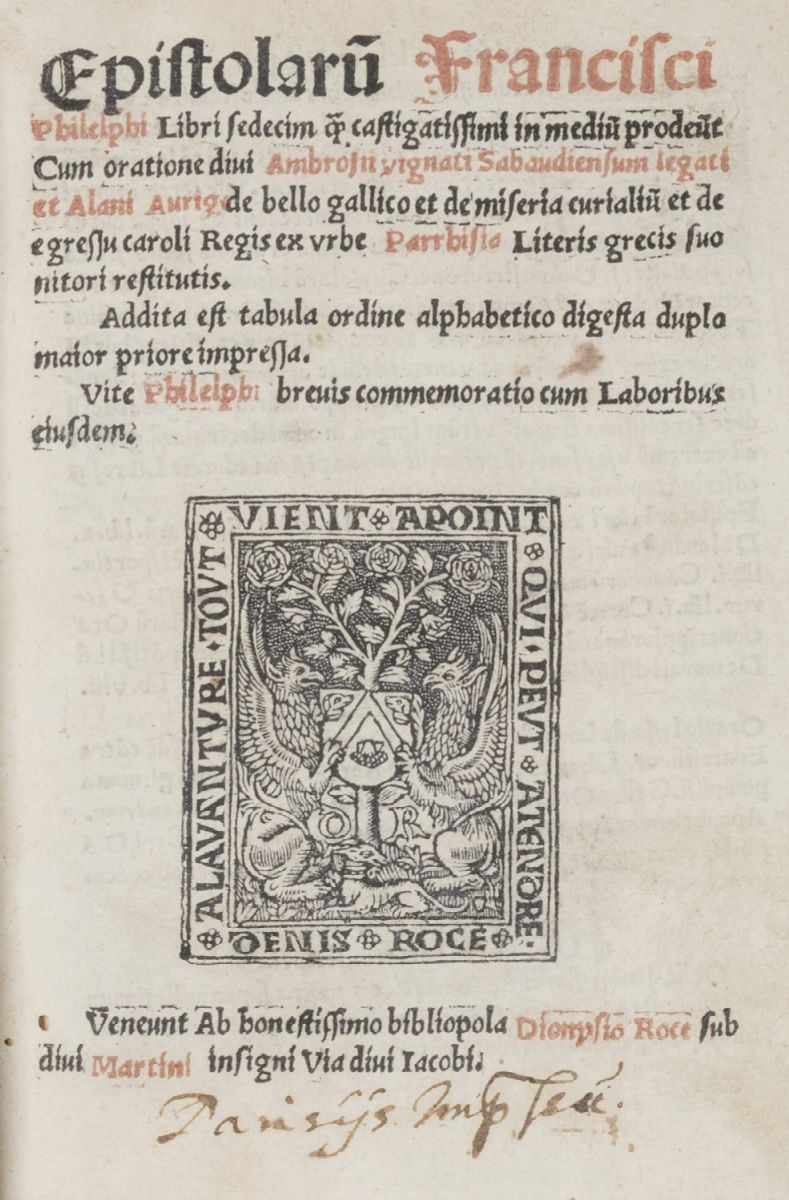 Epistolarū Francisci
Philelphi Libri sedecim q̄ȝ castigatissimi in mediū prodeūt
Cum oratione divi Ambrosii vignati Sabaudiensum legati
et Alani Aurige de bello gallico et de miseria curialiū et de
egressu caroli Regis ex vrbe Parrhisia Literis grecis suo
nitori restitutis.
Addita est tabula ordine alphabetico digesta duplo
maior priore impressa.
Vite Philelphi breuis commemoratio cum Laboribus
eiusdem.
VIENT APOINT
ALAVANTVRE·TOVT
QVI·PEVT ATENDRE·
O R
DENIS ROCE
Veneunt Ab honestissimo bibliopola Dionysio Roce sub
diui Martini insigni Via diui Iacobi.
Parisijs